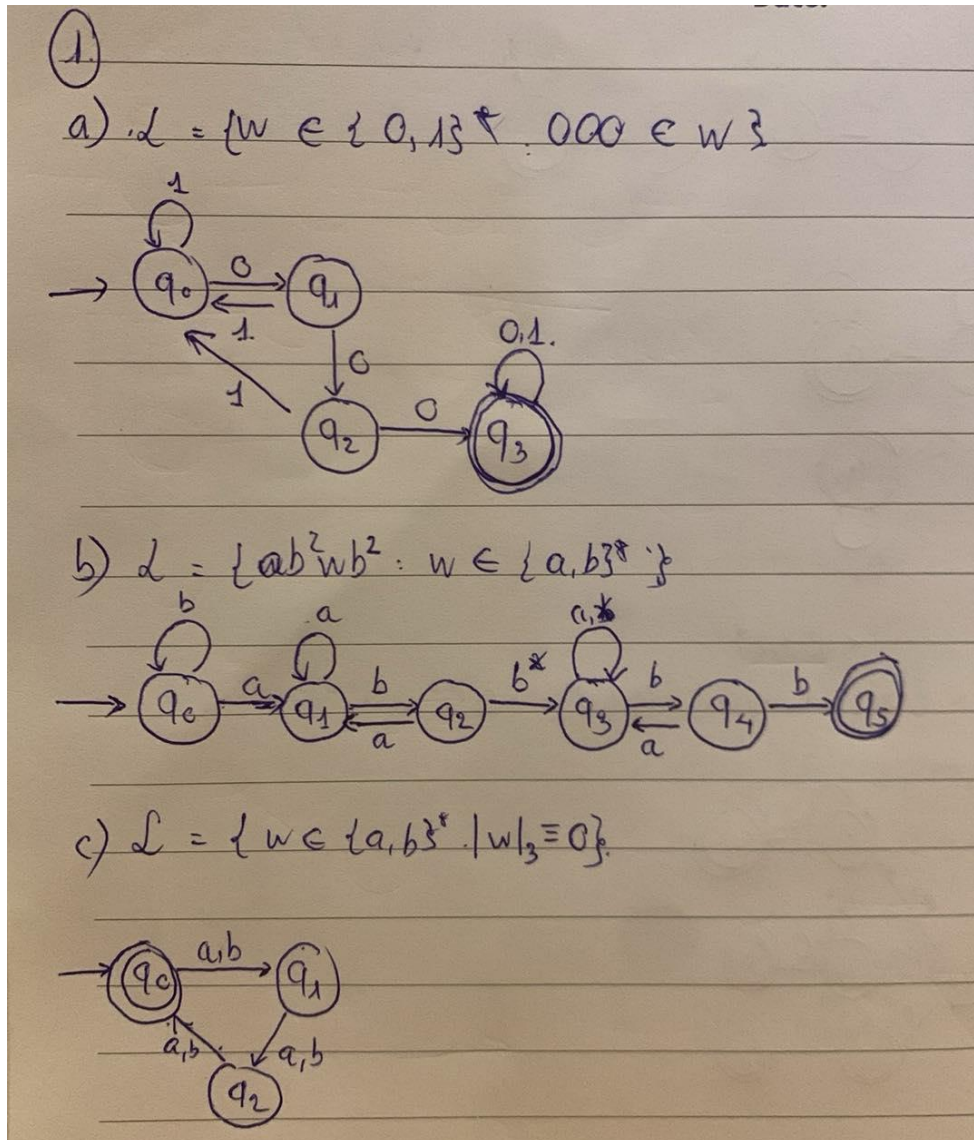 1.
a) L = {w ∈ {0,1}* : 000 ∈ w}
1
q0 0 q1
1 0,1.
0
1 0
q2 q3
b) L = {ab²wb² : w ∈ {a,b}*}
b a a,
q0 a q1 b q2 b* q3 b q4 b q5
a a
c) L = {w ∈ {a,b}* : |w|₃ ≡ 0}.
q0 a,b q1
a,b a,b
q2